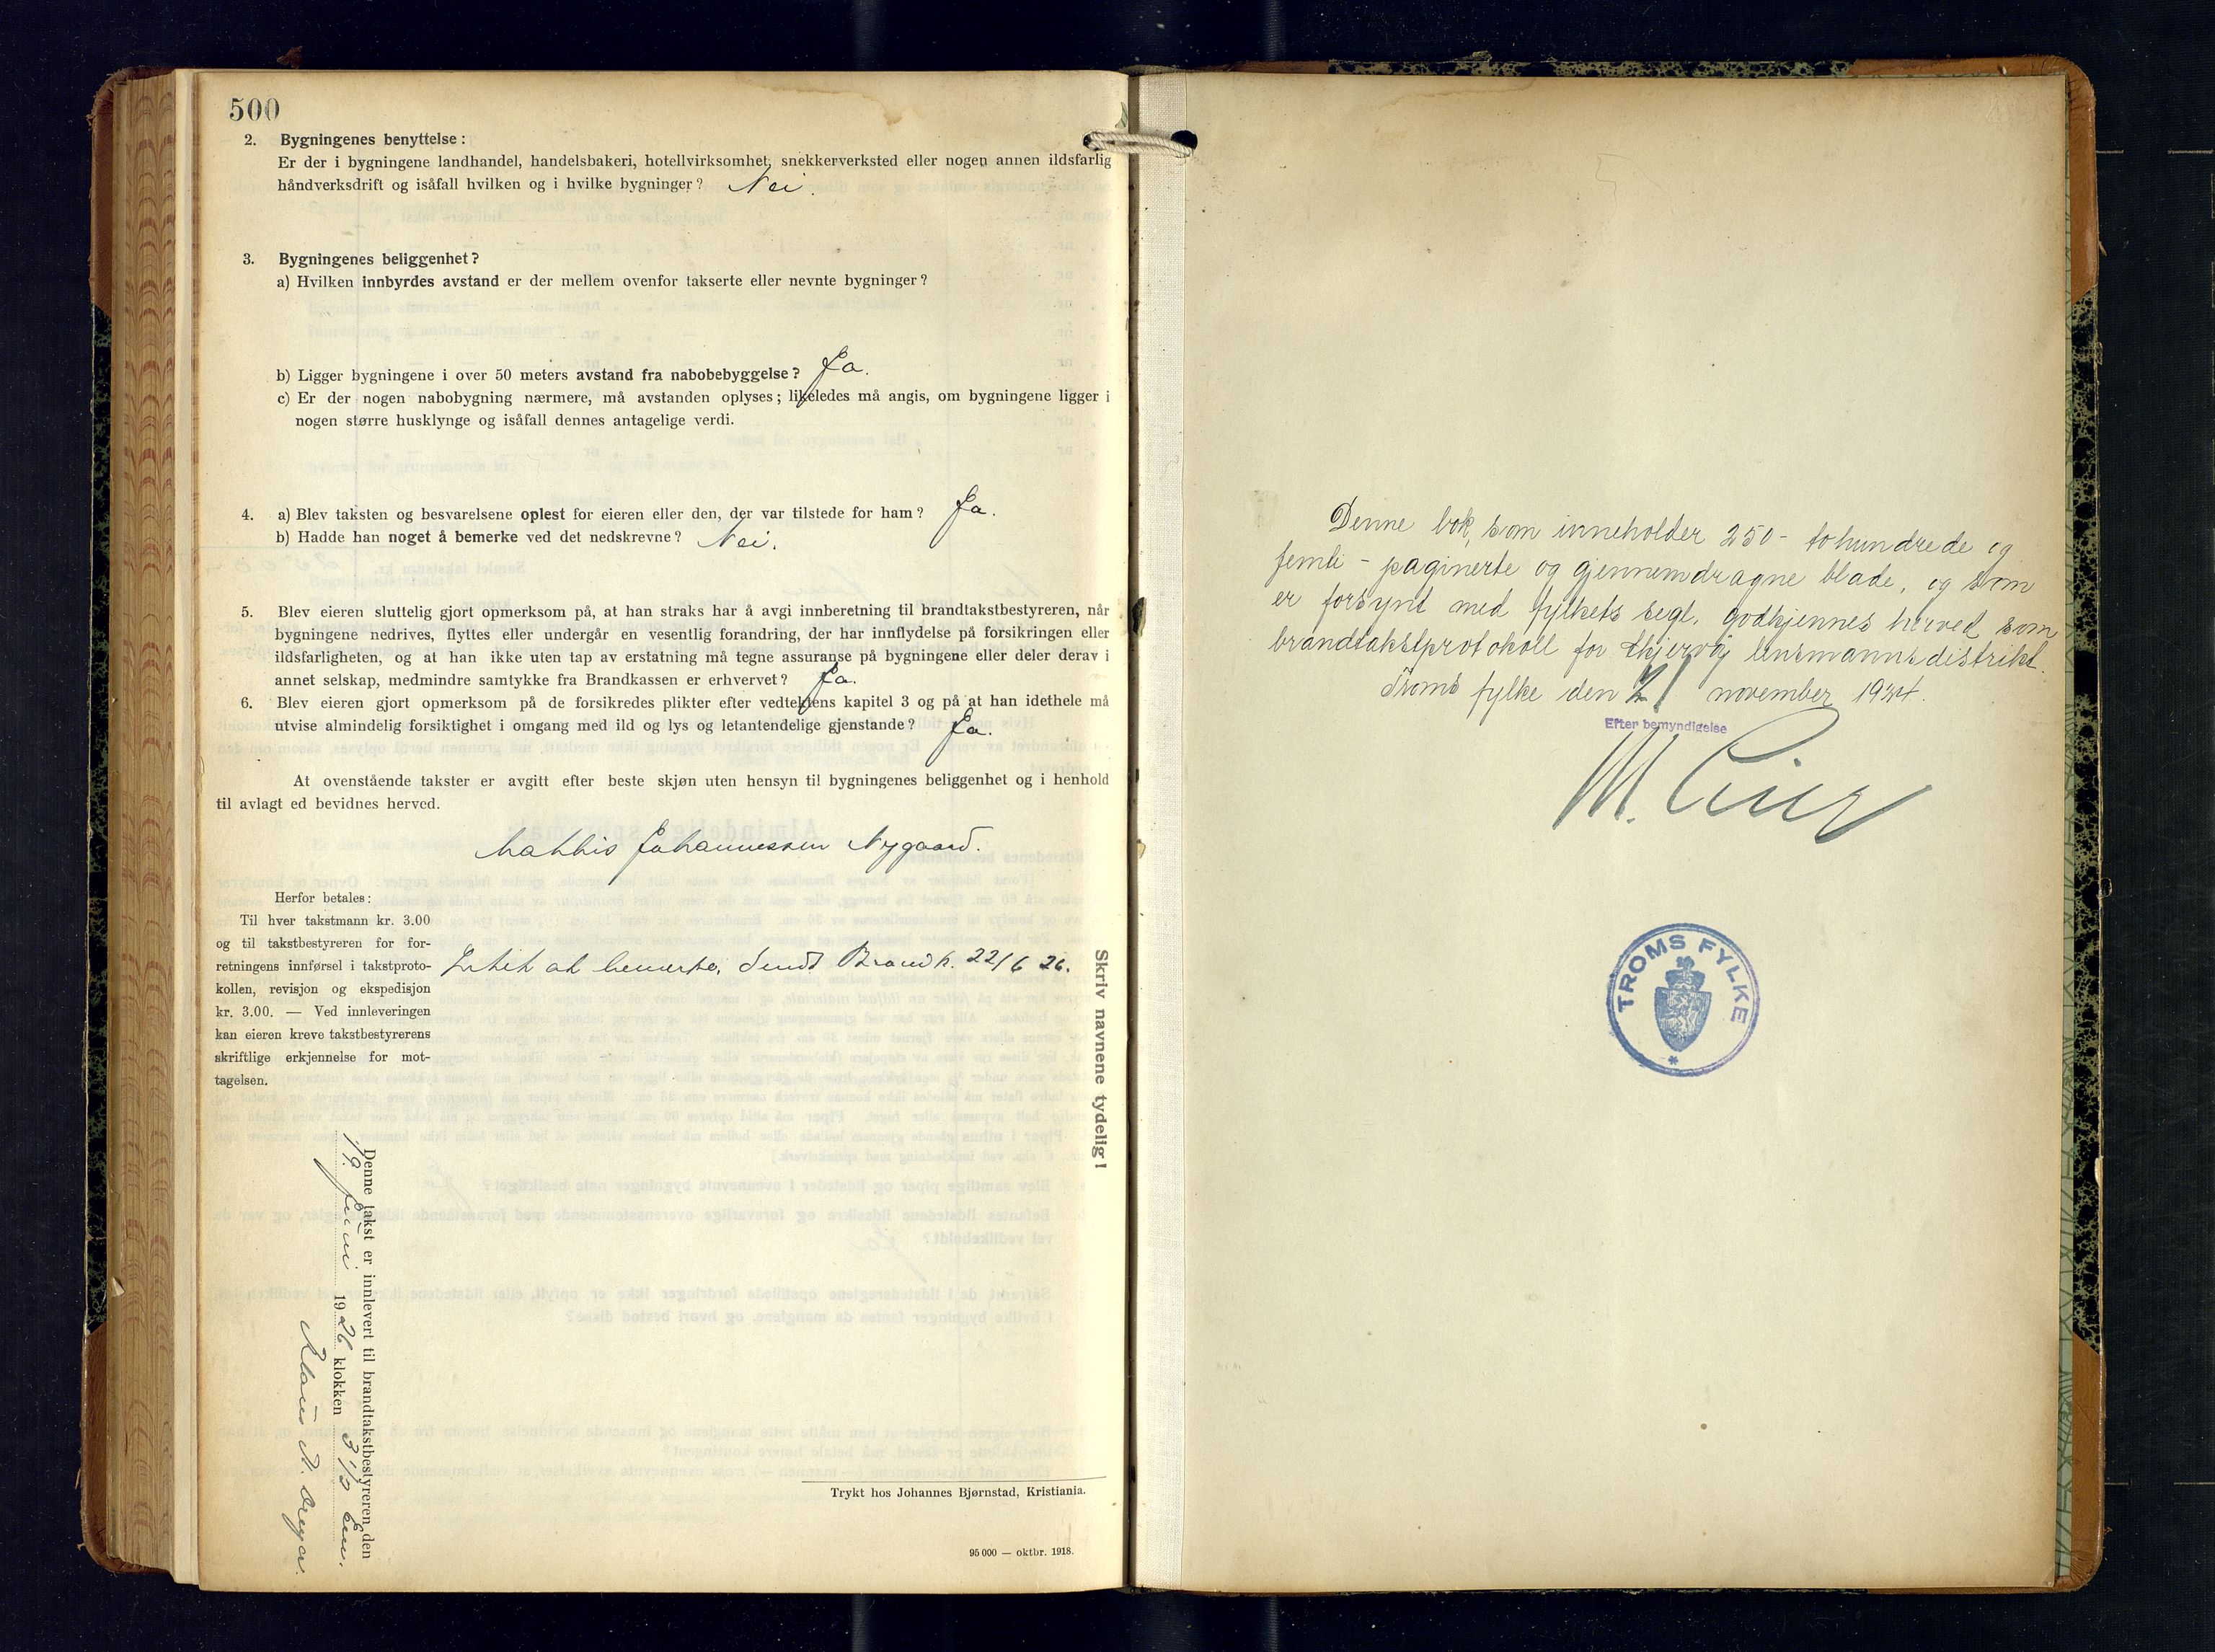 500
2. Bygningenes benyttelse:
Er der i bygningene landhandel, handelsbakeri, hotellvirksomhet, snekkerverksted eller nogen annen ildsfarlig
håndverksdrift og isåfall hvilken og i hvilke bygninger? Nei.
3. Bygningenes beliggenhet?
a) Hvilken innbyrdes avstand er der mellem ovenfor takserte eller nevnte bygninger?
b) Ligger bygningene i over 50 meters avstand fra nabobebyggelse? Ja.
c) Er der nogen nabobygning nærmere, må avstanden oplyses; likeledes må angis, om bygningene ligger i
nogen større husklynge og isåfall dennes antagelige verdi.
4. a) Blev taksten og besvarelsene oplest for eieren eller den, der var tilstede for ham? Ja.
b) Hadde han noget å bemerke ved det nedskrevne? Nei.
5. Blev eieren sluttelig gjort opmerksom på, at han straks har å avgi innberetning til brandtakstbestyreren, når
bygningene nedrives, flyttes eller undergår en vesentlig forandring, der har innflydelse på forsikringen eller
ildsfarligheten, og at han ikke uten tap av erstatning må tegne assuranse på bygningene eller deler derav i
annet selskap, medmindre samtykke fra Brandkassen er erhvervet? Ja.
6. Blev eieren gjort opmerksom på de forsikredes plikter efter vedtektens kapitel 3 og på at han idethele må
utvise almindelig forsiktighet i omgang med ild og lys og letantendelige gjenstande? Ja.
At ovenstående takster er avgitt efter beste skjøn uten hensyn til bygningenes beliggenhet og i henhold
til avlagt ed bevidnes herved.
Mathis Johannessen Nygaard.
Herfor betales:
Til hver takstmann kr. 3.00
og til takstbestyreren for for-
retningens innførsel i takstproto-
kollen, revisjon og ekspedisjon
kr. 3.00. — Ved innleveringen
kan eieren kreve takstbestyrerens
skriftlige erkjennelse for mot-
tagelsen.
Intet at bemerke, Sendt Brandk. 22/6 26.
Skriv navnene tydelig!
Denne takst er innlevert til brandtakstbestyreren den
19. juni 1926 klokken 3 1/2 Em.
Trykt hos Johannes Bjørnstad, Kristiania.
95 000 — oktbr. 1918.
Denne bok, som inneholder 250 - tohundrede og
femti - paginerte og gjennemdragne blade, og som
er forsynt med fylkets segl, godkjennes herved som
brandtakstprotokoll for Skjervøy lensmannsdistrikt.
Troms fylke den 21 november 1924.
Efter bemyndigelse
TROMS FYLKE